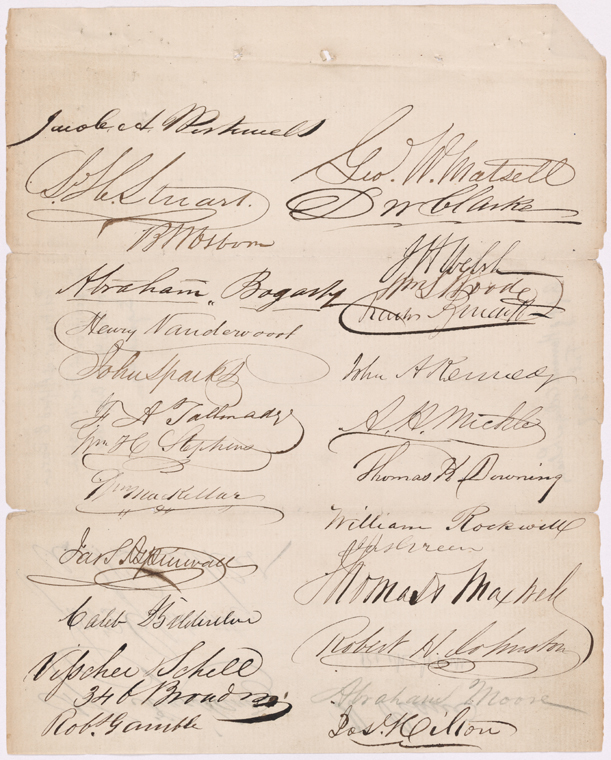 Jacob A.
S. H. Stuart.
B W Osborn
Abraham Bogart
Henry Vanderwoort
John Sparks
F A Tallmadge
Wm H C Stephens
Wm MacKellar
Jas S Aspinwall
Caleb
Visscher Schell
340 Broadway
Robt Gamble
Geo. W. Matsell
D W Clarke
J H Welsh
Wm S Woode
John A Kennedy
A. H. Mickle
Thomas K Downing
William Rockwell
Green
Thomas Maxwell
Robert H. Johnston
Abraham Moore
Jos. Hilton